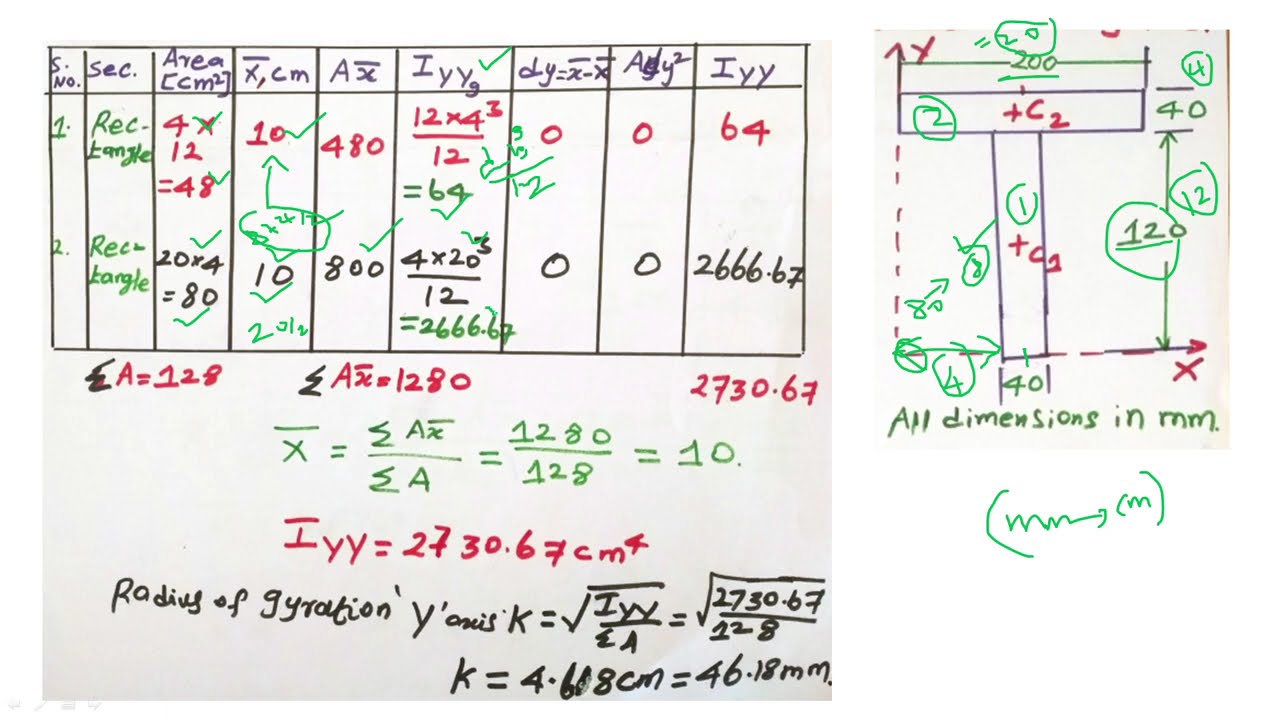 S. No. Sec. Area [cm²] x̄, cm Ax̄ I_YYg ✓ dy=x̄-X̄ Ady² I_YY
1. Rec-tangle 4 × 12 =48 10 480 12×4³/12 =64 0 0 64
12
2. Rec-tangle 20×4 =80 10 800 4×20³/12 =2666.67 0 0 2666.67
20/2
ΣA=128 ΣAx̄=1280 2730.67
X̄ = ΣAx̄/ΣA = 1280/128 = 10.
I_YY = 2730.67 cm⁴
Radius of gyration 'Y' axis K = √(I_YY/ΣA) = √(2730.67/128)
K = 4.618cm = 46.18mm.
= 20
Y 200
4
2 +C2 40
1 12
120
+C1
8
80
4 X
40
All dimensions in mm.
(mm→cm)